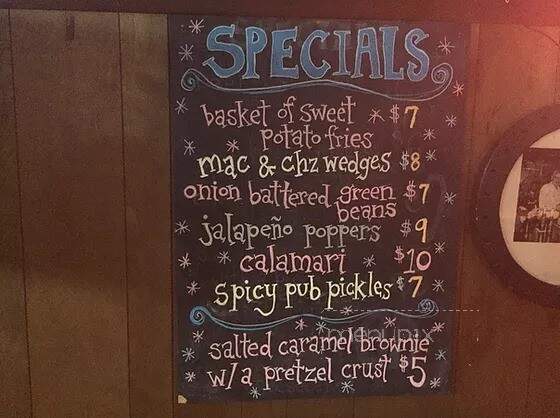 SPECIALS
basket of sweet $7
potato fries
mac & chz wedges $8
onion battered green $7
beans
jalapeño poppers $9
calamari $10
spicy pub pickles $7
menupix
salted caramel brownie
w/a pretzel crust $5